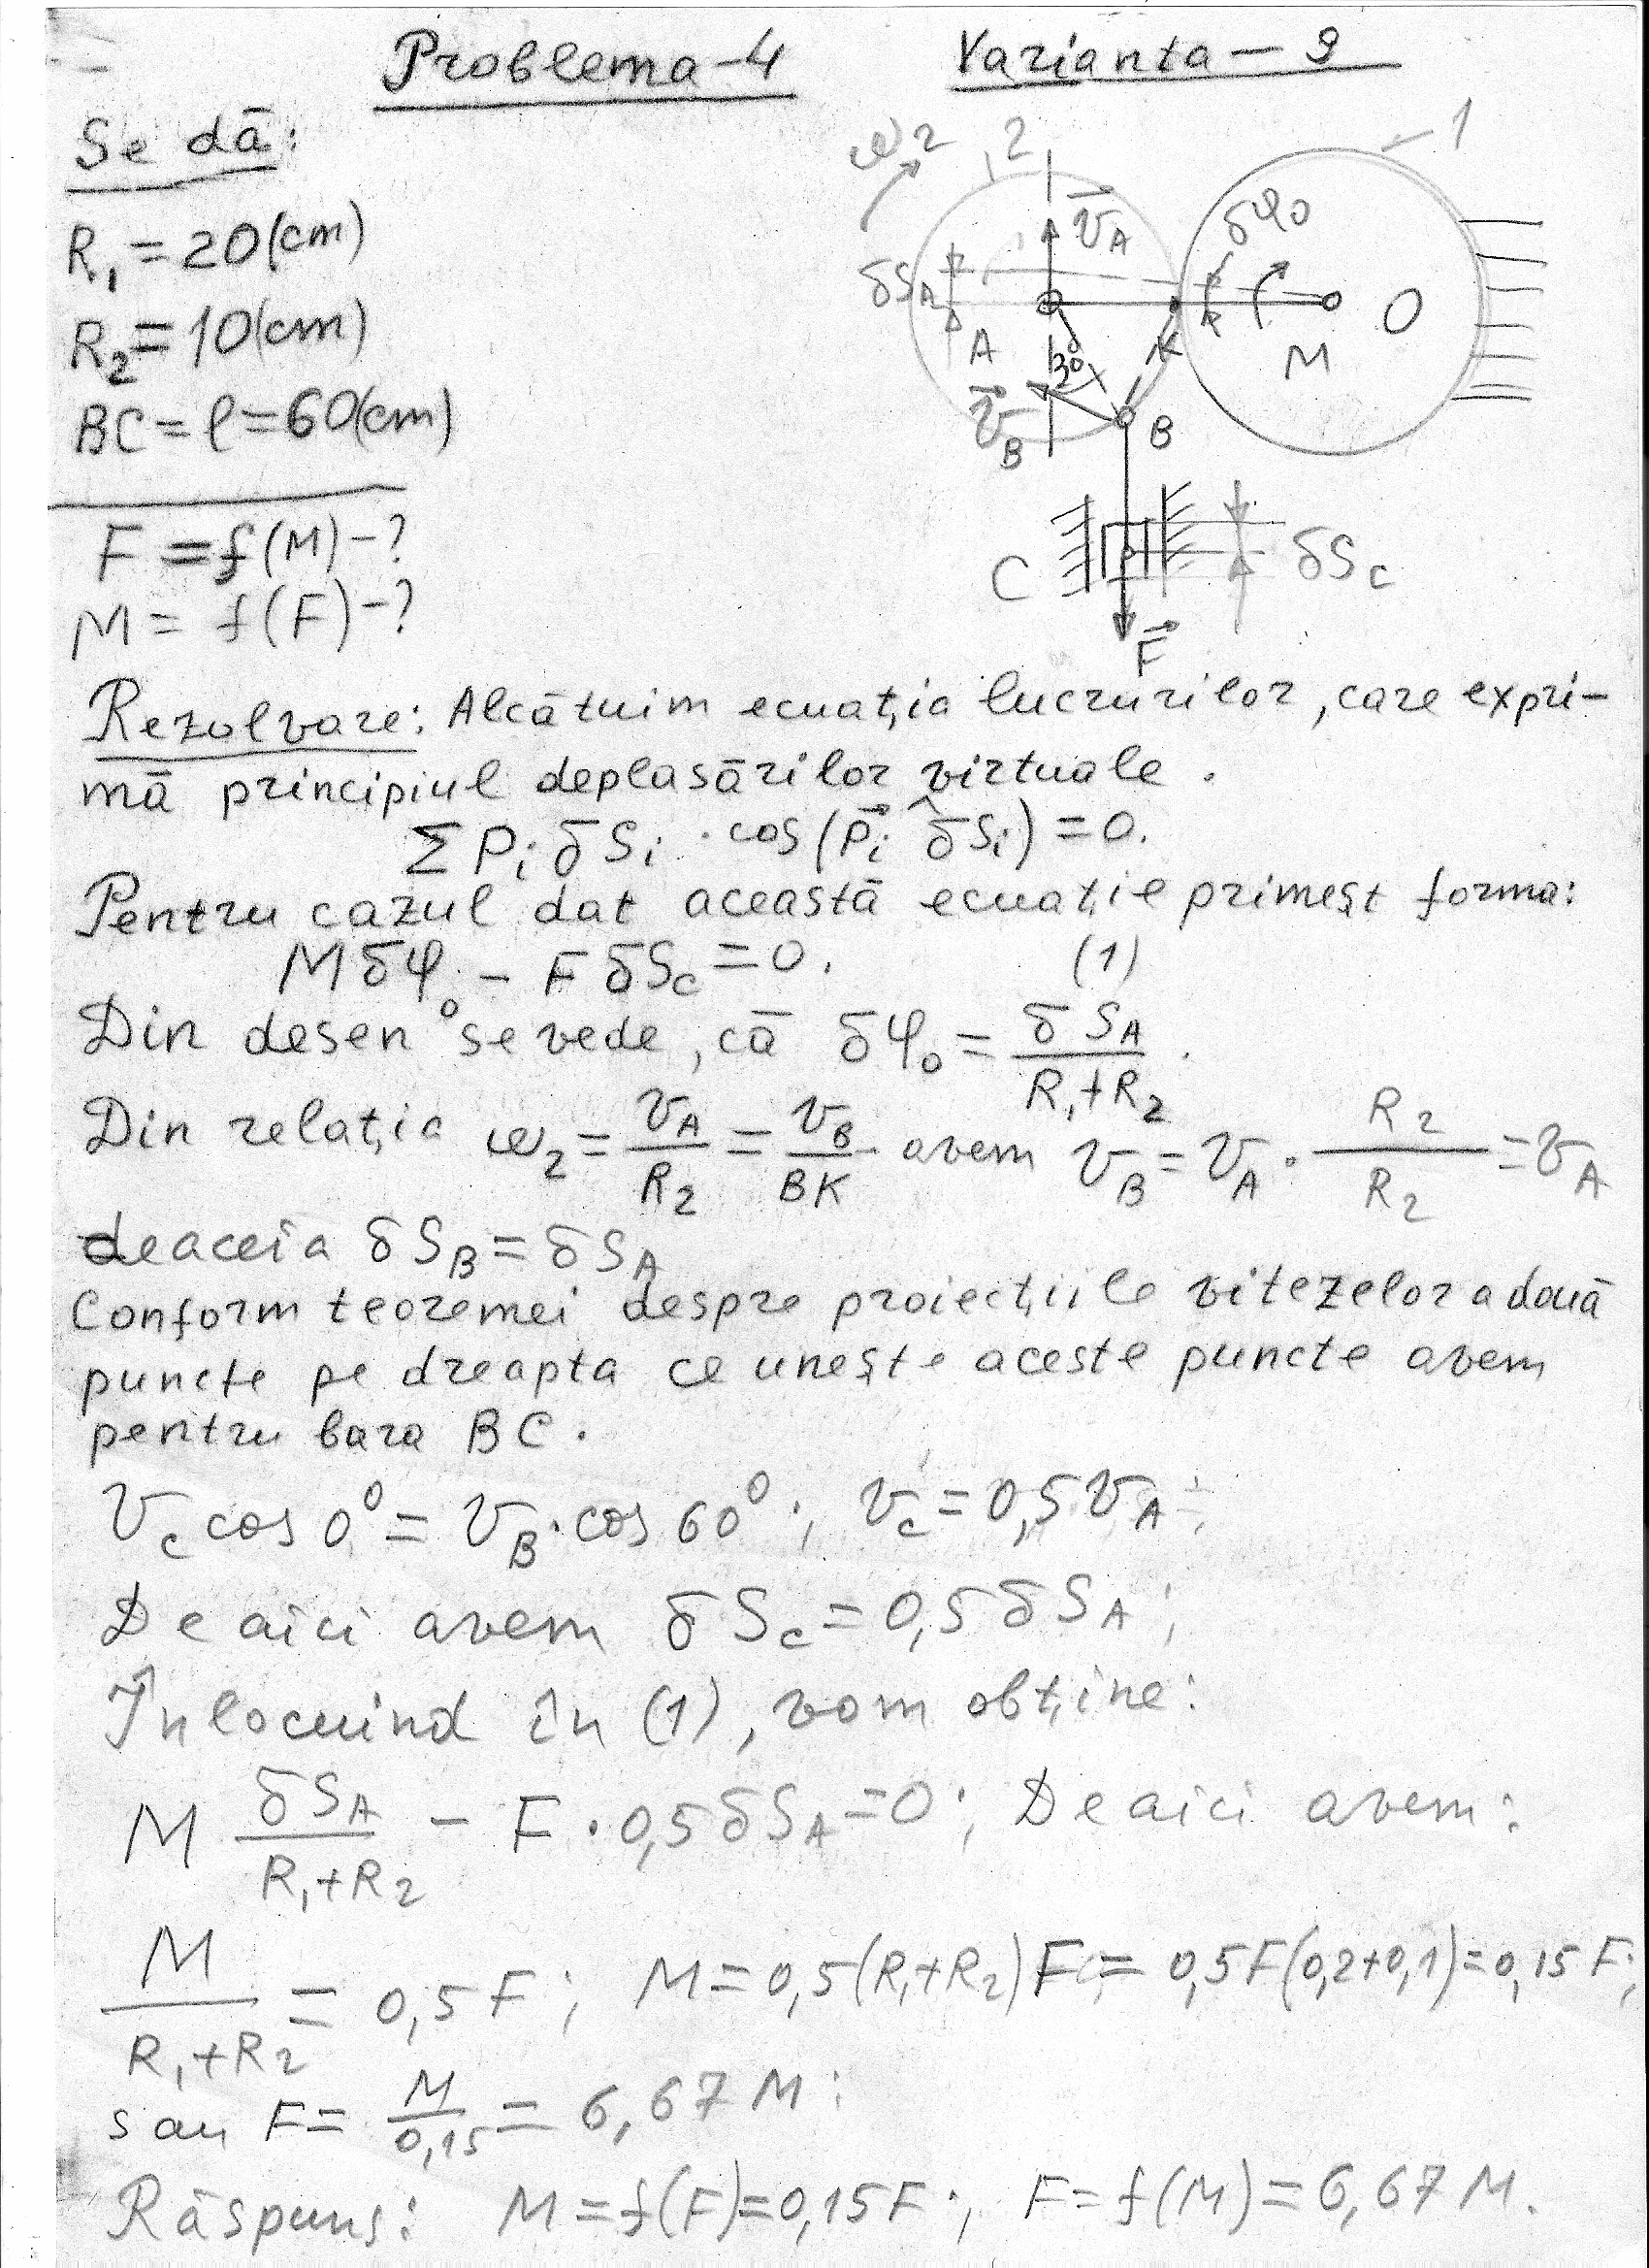 Problema-4 Varianta-9
Se dă:
R₁ = 20(cm)
R₂ = 10(cm)
BC = l = 60(cm)
F = f(M)-?
M = f(F)-?
ω₂ 2 1
v⃗_A δφ₀
δS_A
A K M O
30°
v⃗_B B
C δS_c
F⃗
Rezolvare: Alcătuim ecuația lucrurilor, care expri-
mă principiul deplasărilor virtuale.
Σ Pᵢ δSᵢ · cos(P⃗ᵢ ^ δSᵢ) = 0.
Pentru cazul dat această ecuație primeșt forma:
Mδφ₀ - F δS_c = 0. (1)
Din desen se vede, că δφ₀ = δS_A / (R₁+R₂).
Din relația ω₂ = v_A / R₂ = v_B / BK avem v_B = v_A · R₂ / R₂ = v_A
deaceia δS_B = δS_A
Conform teoremei despre proiecțiile vitezelor a două
puncte pe dreapta ce unește aceste puncte avem
pentru bara BC.
v_c cos 0° = v_B · cos 60°; v_c = 0,5 v_A;
De aici avem δS_c = 0,5 δS_A;
Înlocuind în (1), vom obține:
M δS_A / (R₁+R₂) - F · 0,5 δS_A = 0; De aici avem:
M / (R₁+R₂) = 0,5 F; M = 0,5(R₁+R₂)F = 0,5F(0,2+0,1) = 0,15 F;
sau F = M / 0,15 = 6,67 M;
Răspuns: M = f(F) = 0,15F; F = f(M) = 6,67 M.